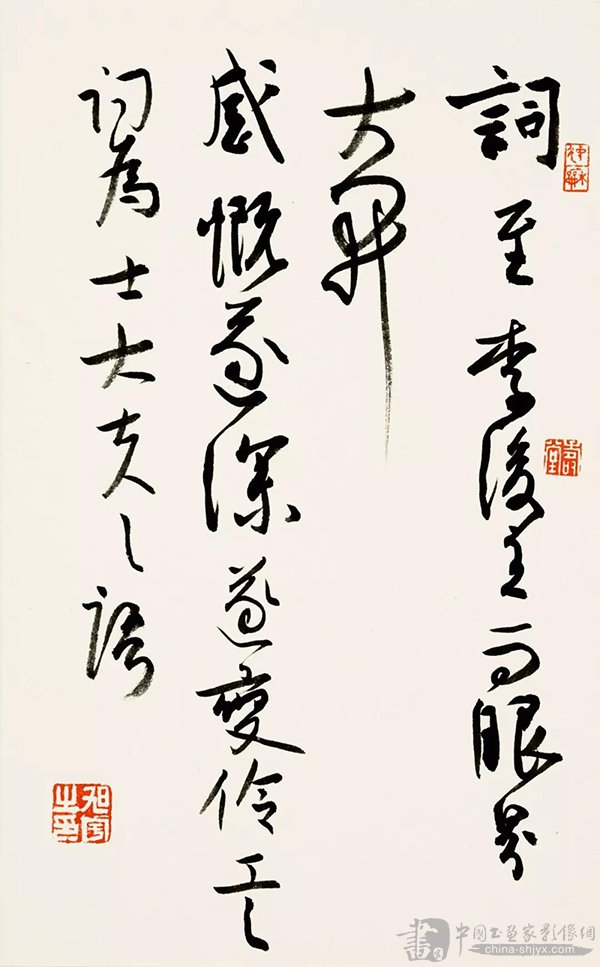 詞至李後主而眼界
大開
感慨遂深遂變伶工之
詞為士大夫之語
中國書畫家影像網
china-shjyx.com